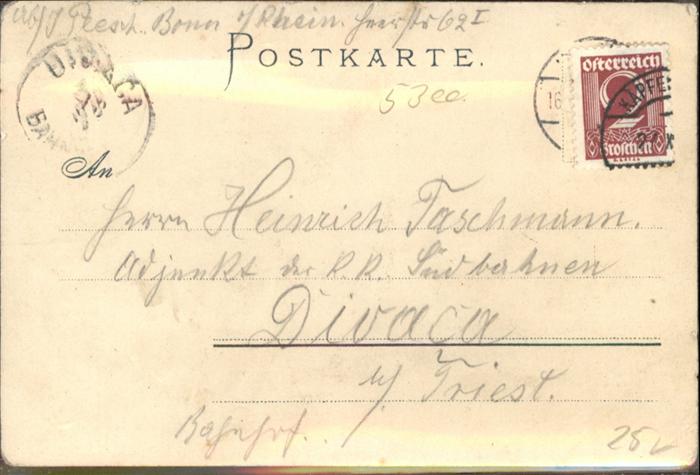 Ab/J Presch. Bonn a/Rhein. Heerstr 62 I
POSTKARTE.
DIVACA
BAHN
Österreich
2
Groschen
16
KAPFE
53 ec.
An
Herrn Heinrich Taschmann.
Adjunkt der K. K. Südbahnen
Divaca
b/ Triest.
Bahnhof.
25